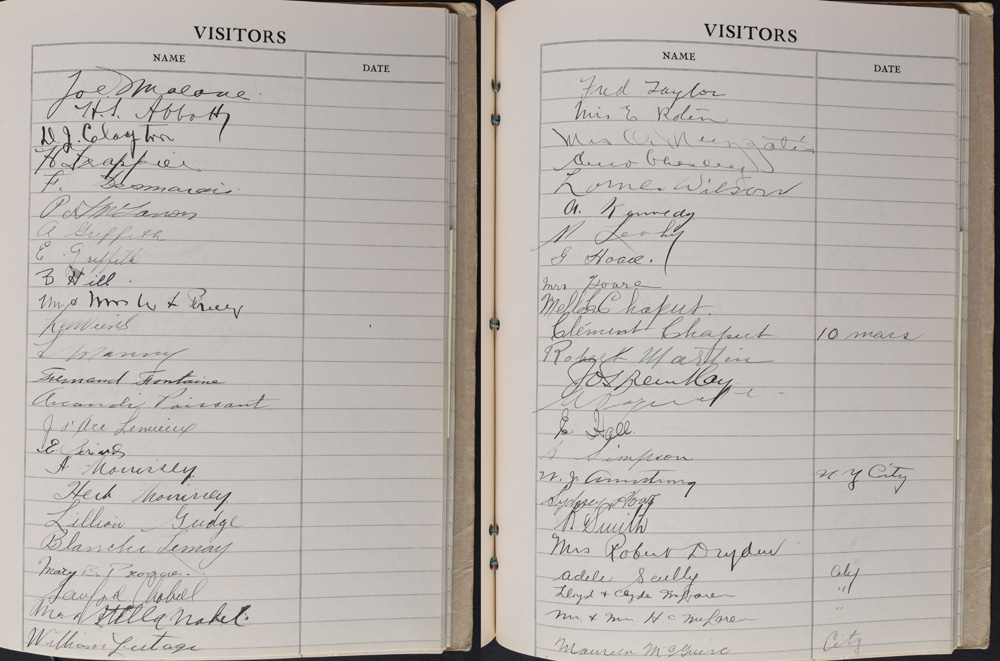 VISITORS
NAME DATE
Joe Malone
H. S. Abbott
D. J. Clayton
H Frappier
F. Desmarais
A Griffith
E Griffith
B Hill.
Mr & Mrs
L Manny
Fernand Fontaine
Poissant
J d'Arc Lemieux
E.
A Morrissey
Herb Morrissey
Lillian Gudge
Blanche Lemay
Mary B.
Mrs Stella Nobel.
William Lestage
VISITORS
NAME DATE
Fred Taylor
Mrs E
Mrs
Lorne Wilson
A. Kennedy
M Leahy
G Hoare.
Mrs Hoare
Chaput.
Clement Chaput 10 mars
Robert Martin
Jos Tremblay
E. Hall.
Simpson
W. J. Armstrong N Y City
Sydney
R Smith
Mrs Robert Dryden
Adele Scully City
Lloyd & Clyde McLaren "
Mr. & Mrs H C McLaren "
Maureen McGuire City